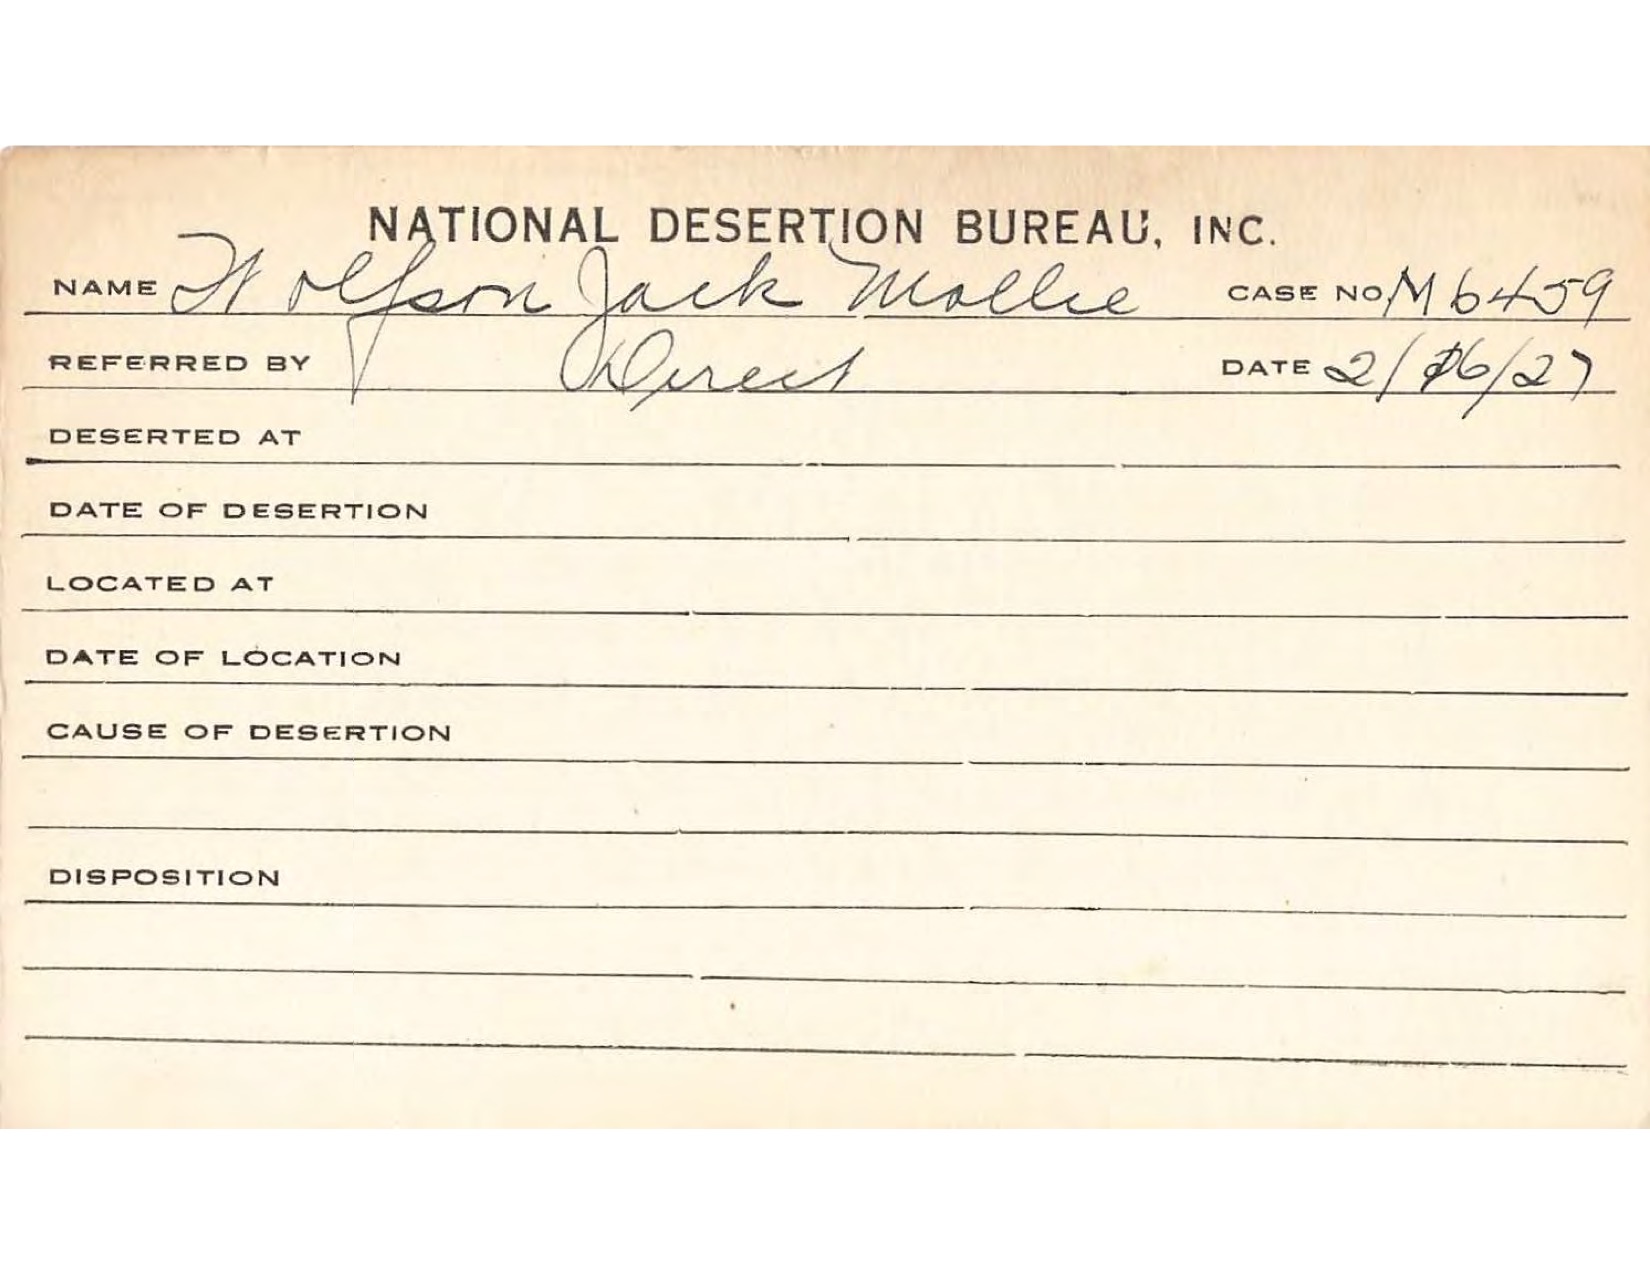 NATIONAL DESERTION BUREAU, INC.
NAME Wolfson Jack Mollie CASE NO. M6459
REFERRED BY Direct DATE 2/16/27
DESERTED AT
DATE OF DESERTION
LOCATED AT
DATE OF LOCATION
CAUSE OF DESERTION
DISPOSITION